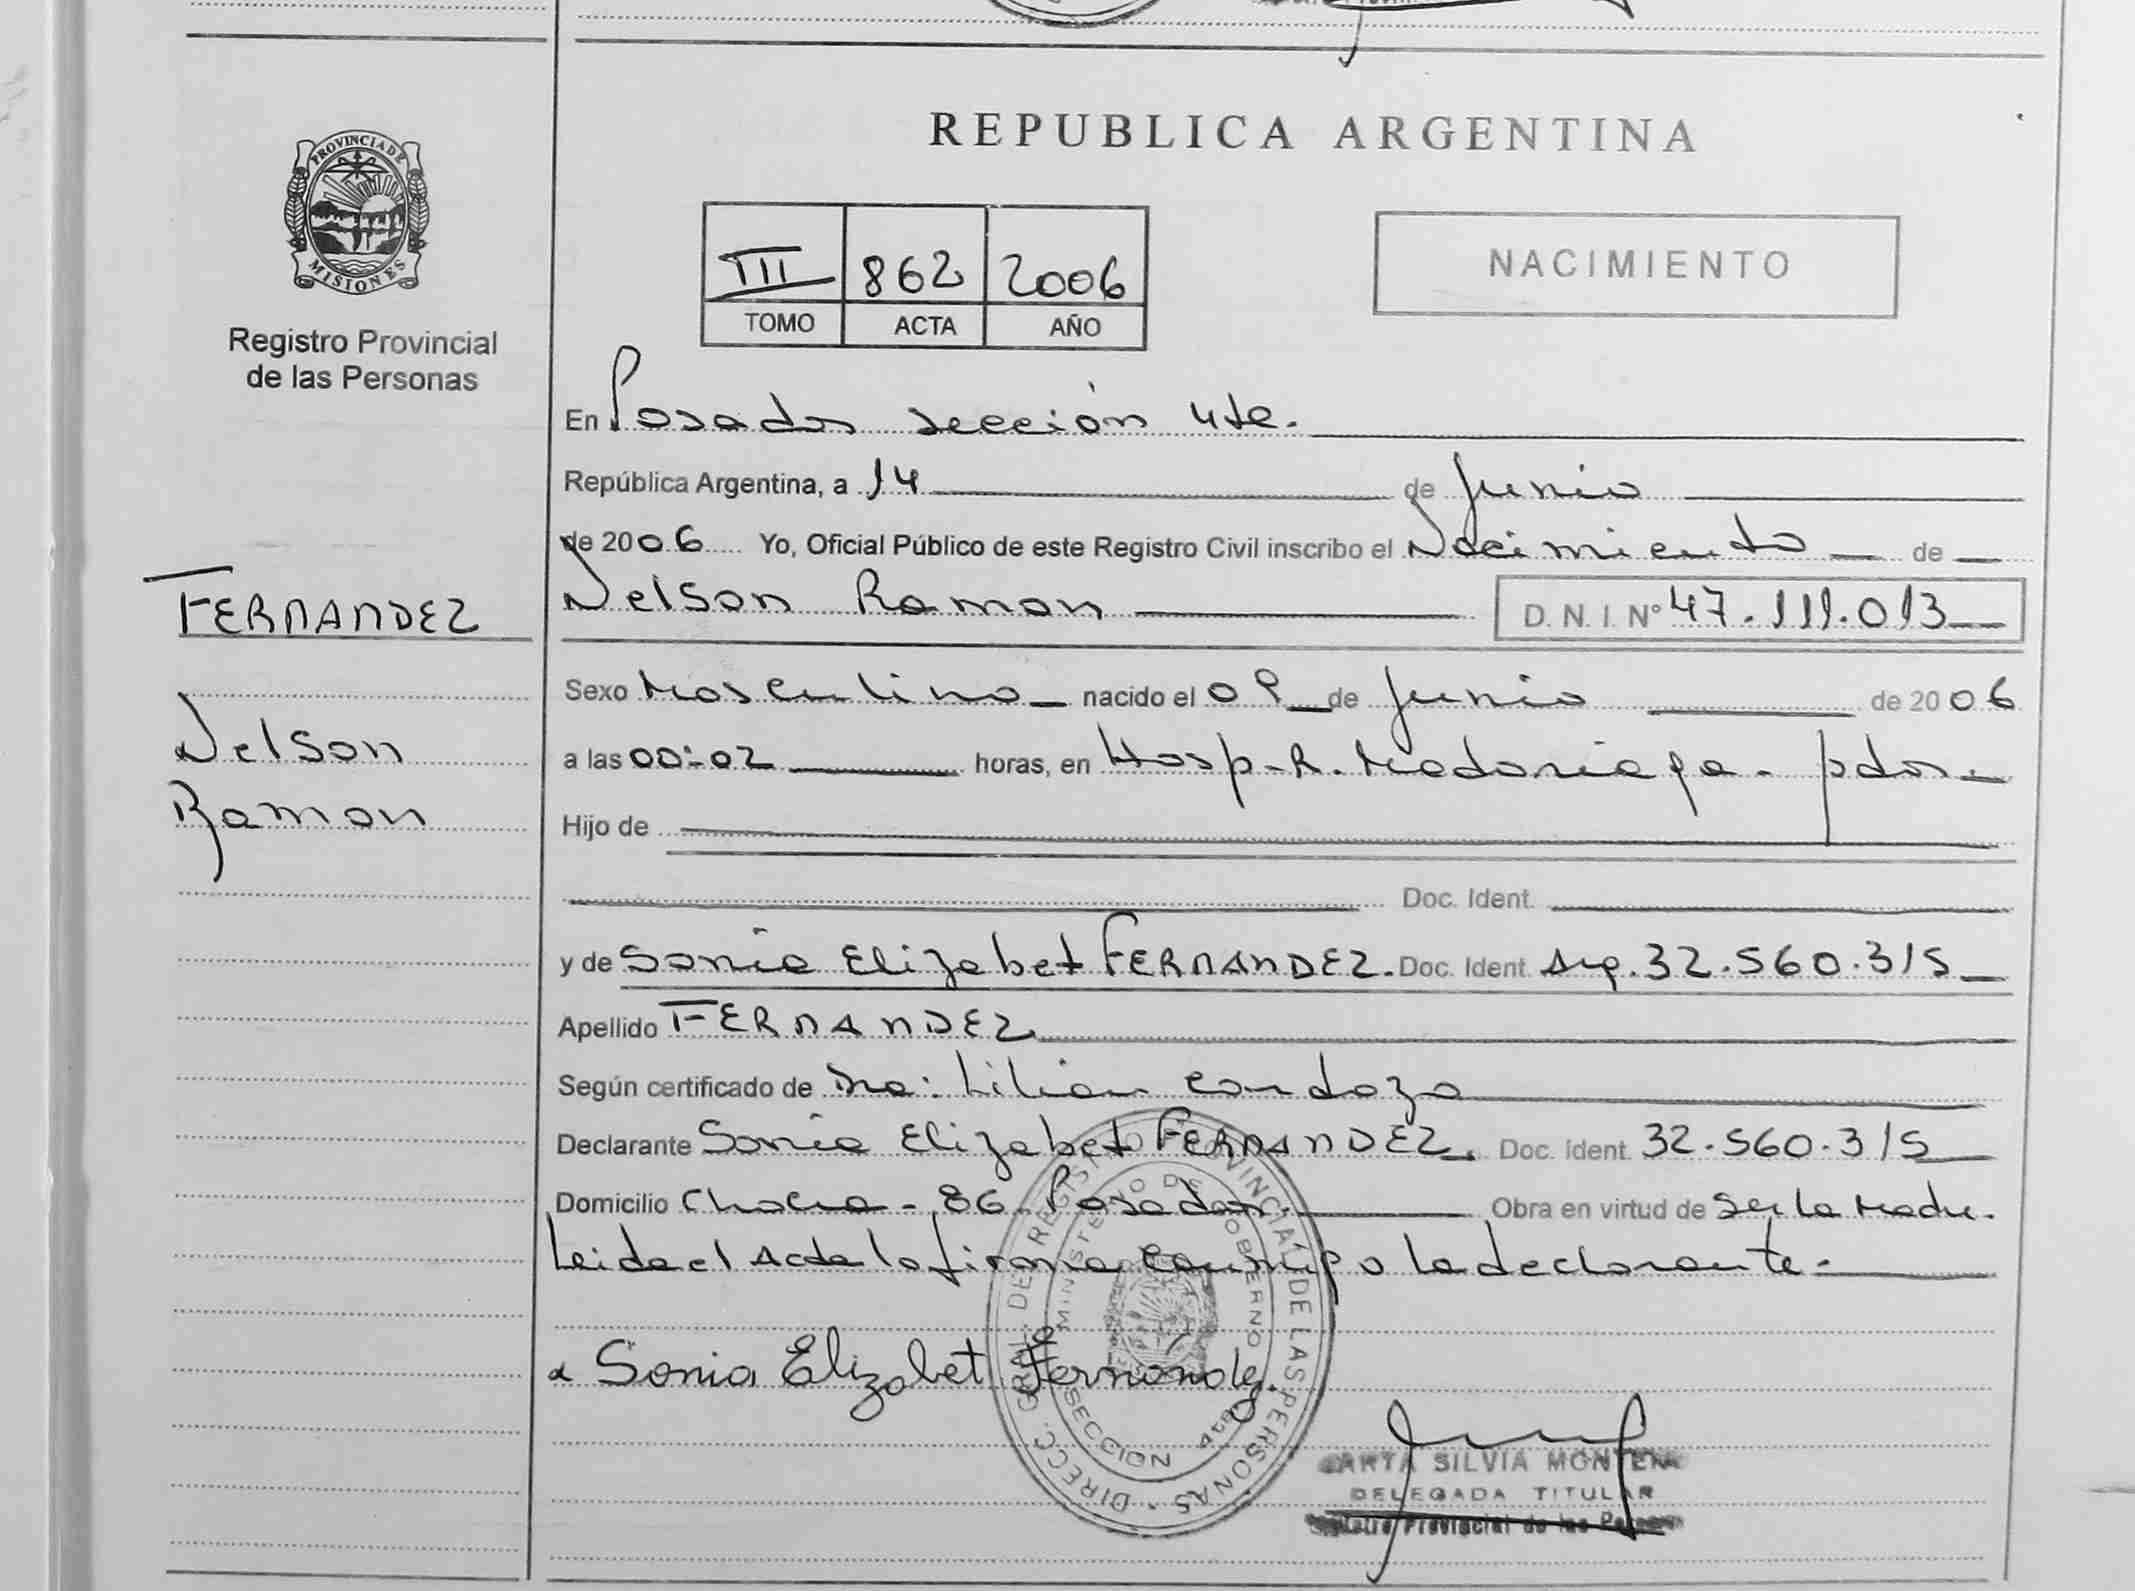 PROVINCIA DE
MISIONES
Registro Provincial
de las Personas
FERNANDEZ
Nelson
Ramon
REPUBLICA ARGENTINA
III 862 2006
TOMO ACTA AÑO
NACIMIENTO
En Posadas sección 4ta.
República Argentina, a 14 de Junio
de 2006 Yo, Oficial Público de este Registro Civil inscribo el Nacimiento de
Nelson Ramon D. N. I. Nº 47.111.013
Sexo Masculino nacido el 09 de Junio de 2006
a las 00:02 horas, en Hosp. R. Madariaga - pdas
Hijo de
Doc. Ident.
y de Sonia Elizabet FERNANDEZ. Doc. Ident. Arg. 32.560.315
Apellido FERNANDEZ
Según certificado de Dra: Lilian Cardozo
Declarante Sonia Elizabet FERNANDEZ. Doc. Ident. 32.560.315
Domicilio Chacra - 86 Posadas. Obra en virtud de ser la Madre.
Leida el Acta la firma conmigo la declarante.
Sonia Elizabet Fernández.
DIRECC. GRAL. DEL REGISTRO PROVINCIAL DE LAS PERSONAS
MINISTERIO DE GOBIERNO
SECCION 4ta
SILVIA
DELEGADA TITULAR
Provincial de las